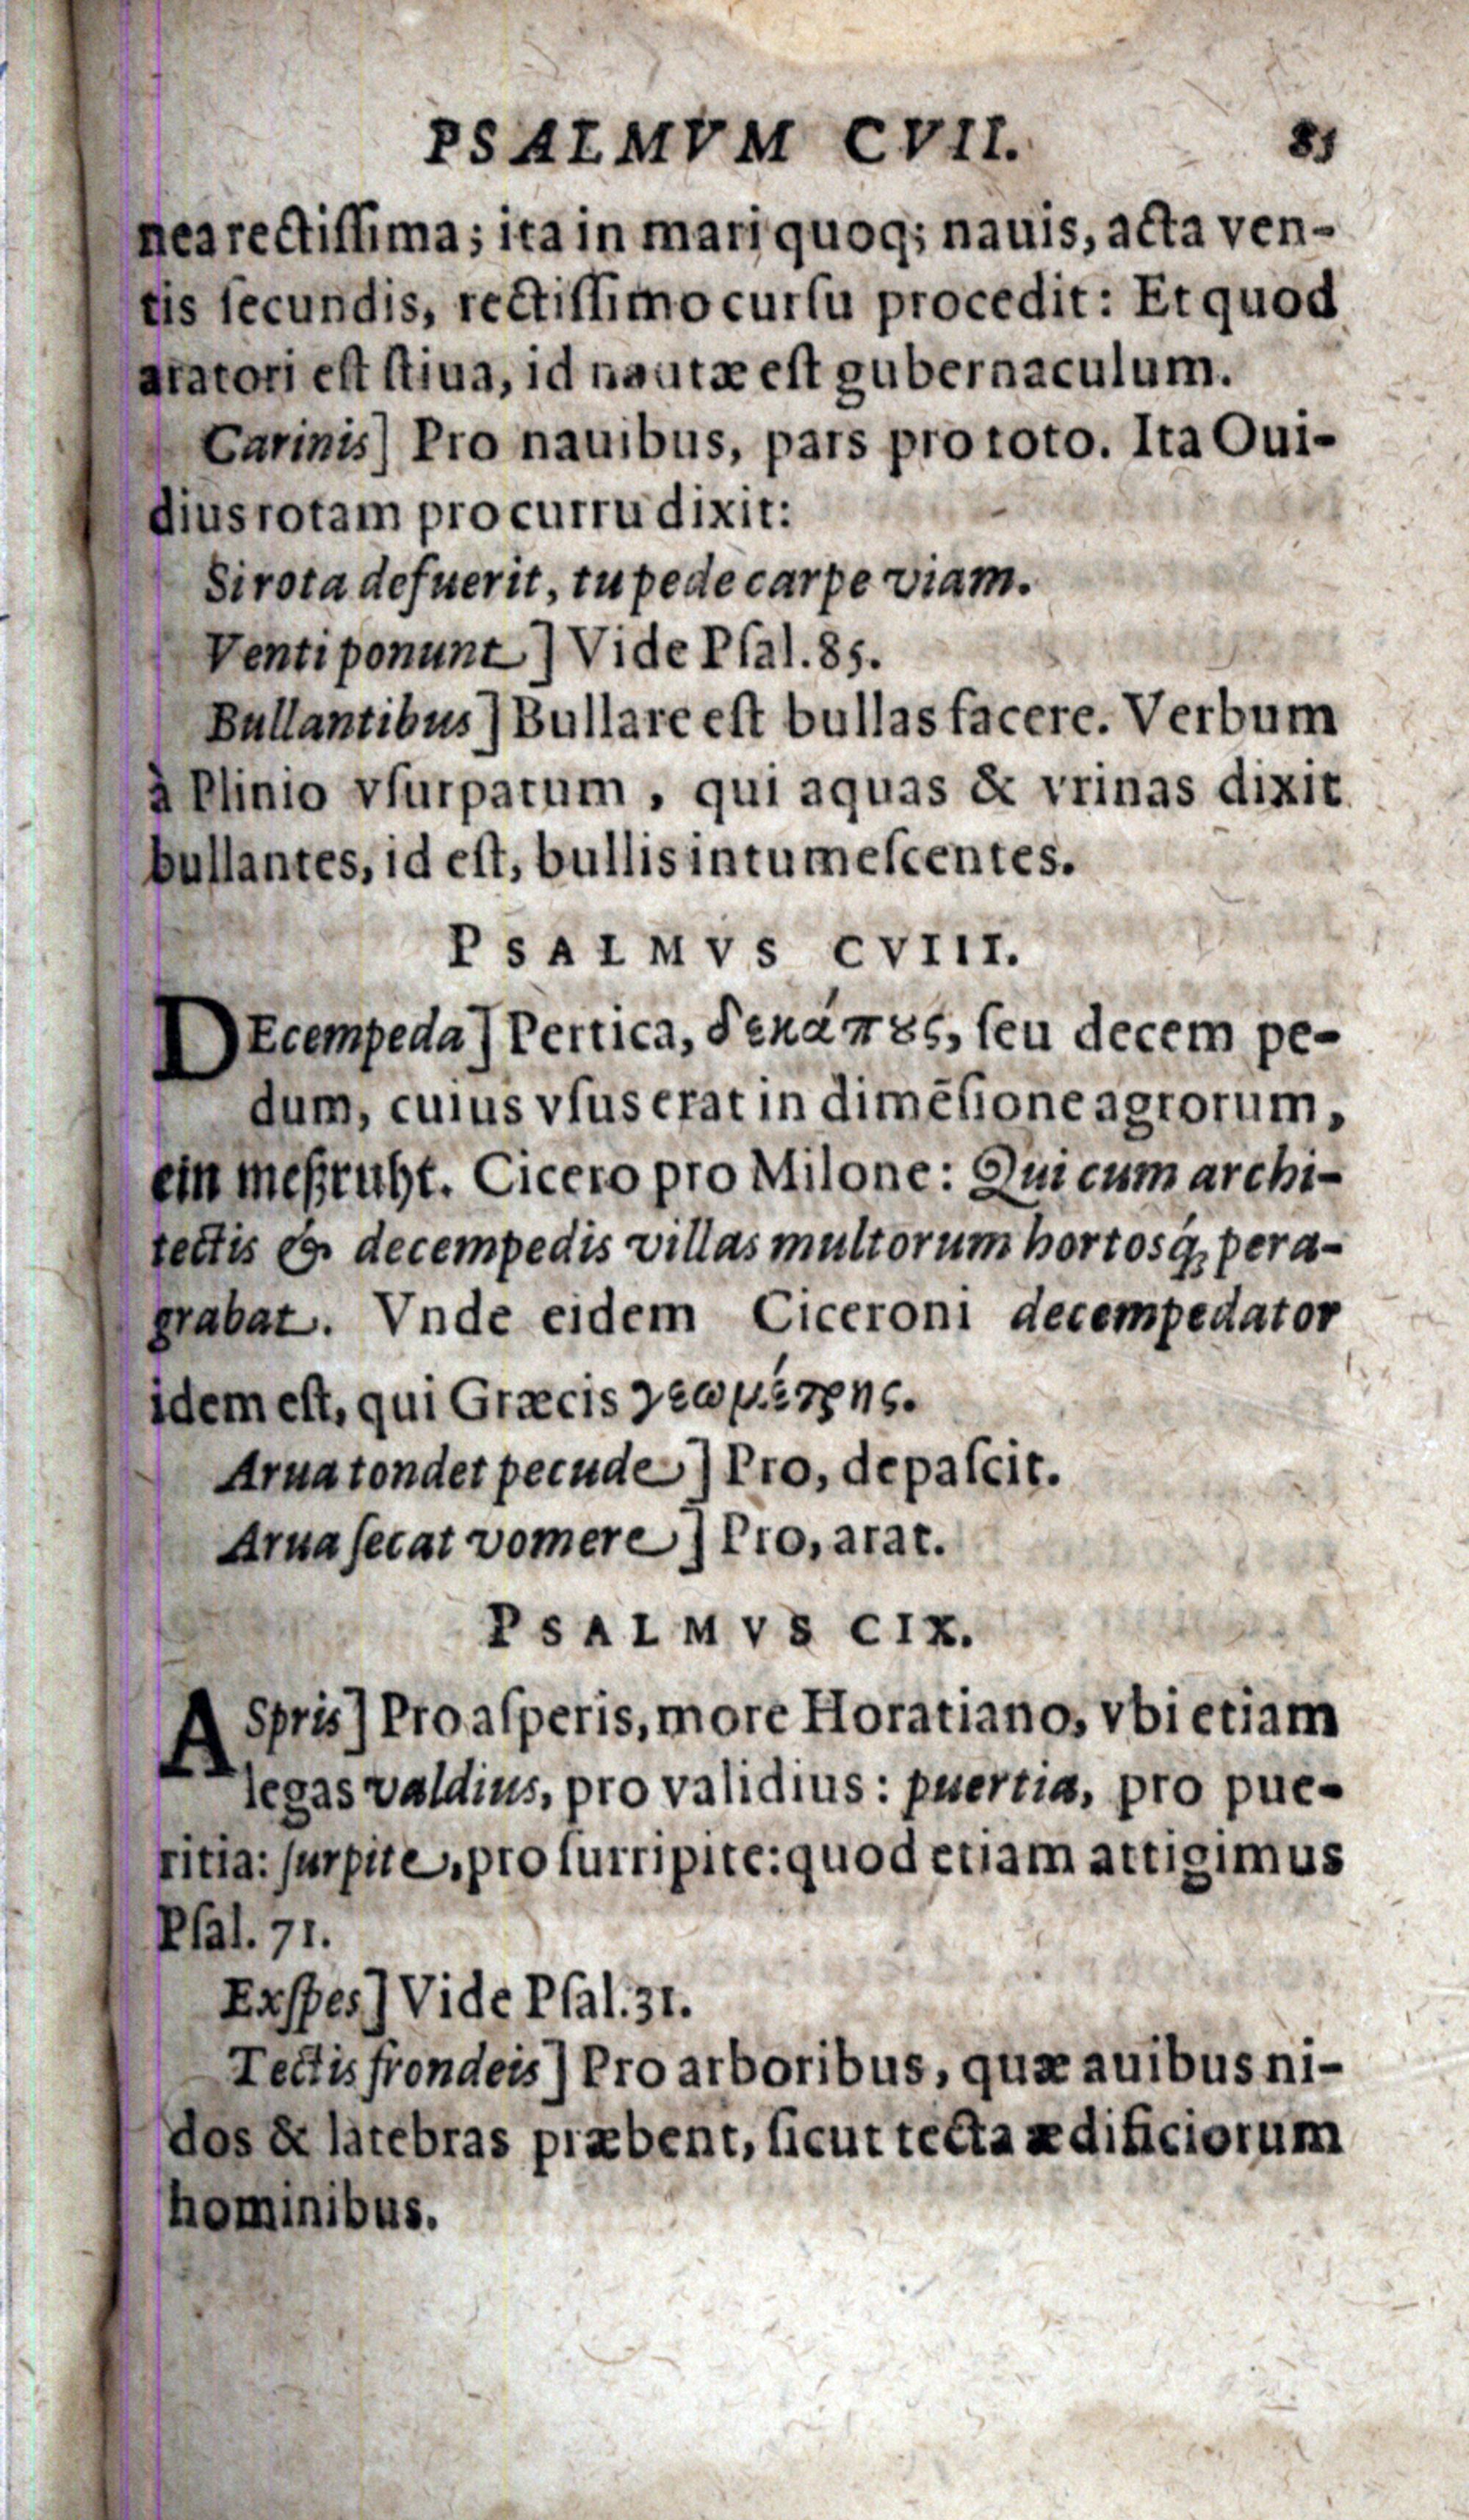 PSALMVM CVII. 85
nea rectiſſima; ita in mari quoq; nauis, acta ven-
tis ſecundis, rectiſſimo curſu procedit: Et quod
aratori eſt ſtiua, id nautæ eſt gubernaculum.
Carinis] Pro nauibus, pars pro toto. Ita Oui-
dius rotam pro curru dixit:
Si rota defuerit, tu pede carpe viam.
Venti ponunt] Vide Pſal. 85.
Bullantibus] Bullare eſt bullas facere. Verbum
à Plinio vſurpatum, qui aquas & vrinas dixit
bullantes, id eſt, bullis intumeſcentes.
PSALMVS CVIII.
DEcempeda] Pertica, δεκάπȣς, ſeu decem pe-
dum, cuius vſus erat in dimēſione agrorum,
ein meßruht. Cicero pro Milone: Qui cum archi-
tectis & decempedis villas multorum hortosq́; pera-
grabat. Vnde eidem Ciceroni decempedator
idem eſt, qui Græcis γεωμέτρης.
Arua tondet pecude] Pro, depaſcit.
Arua ſecat vomere] Pro, arat.
PSALMVS CIX.
ASpris] Pro aſperis, more Horatiano, vbi etiam
legas valdius, pro validius: puertia, pro pue-
ritia: ſurpite, pro ſurripite: quod etiam attigimus
Pſal. 71.
Exſpes] Vide Pſal. 31.
Tectis frondeis] Pro arboribus, quæ auibus ni-
dos & latebras præbent, ſicut tecta ædificiorum
hominibus.